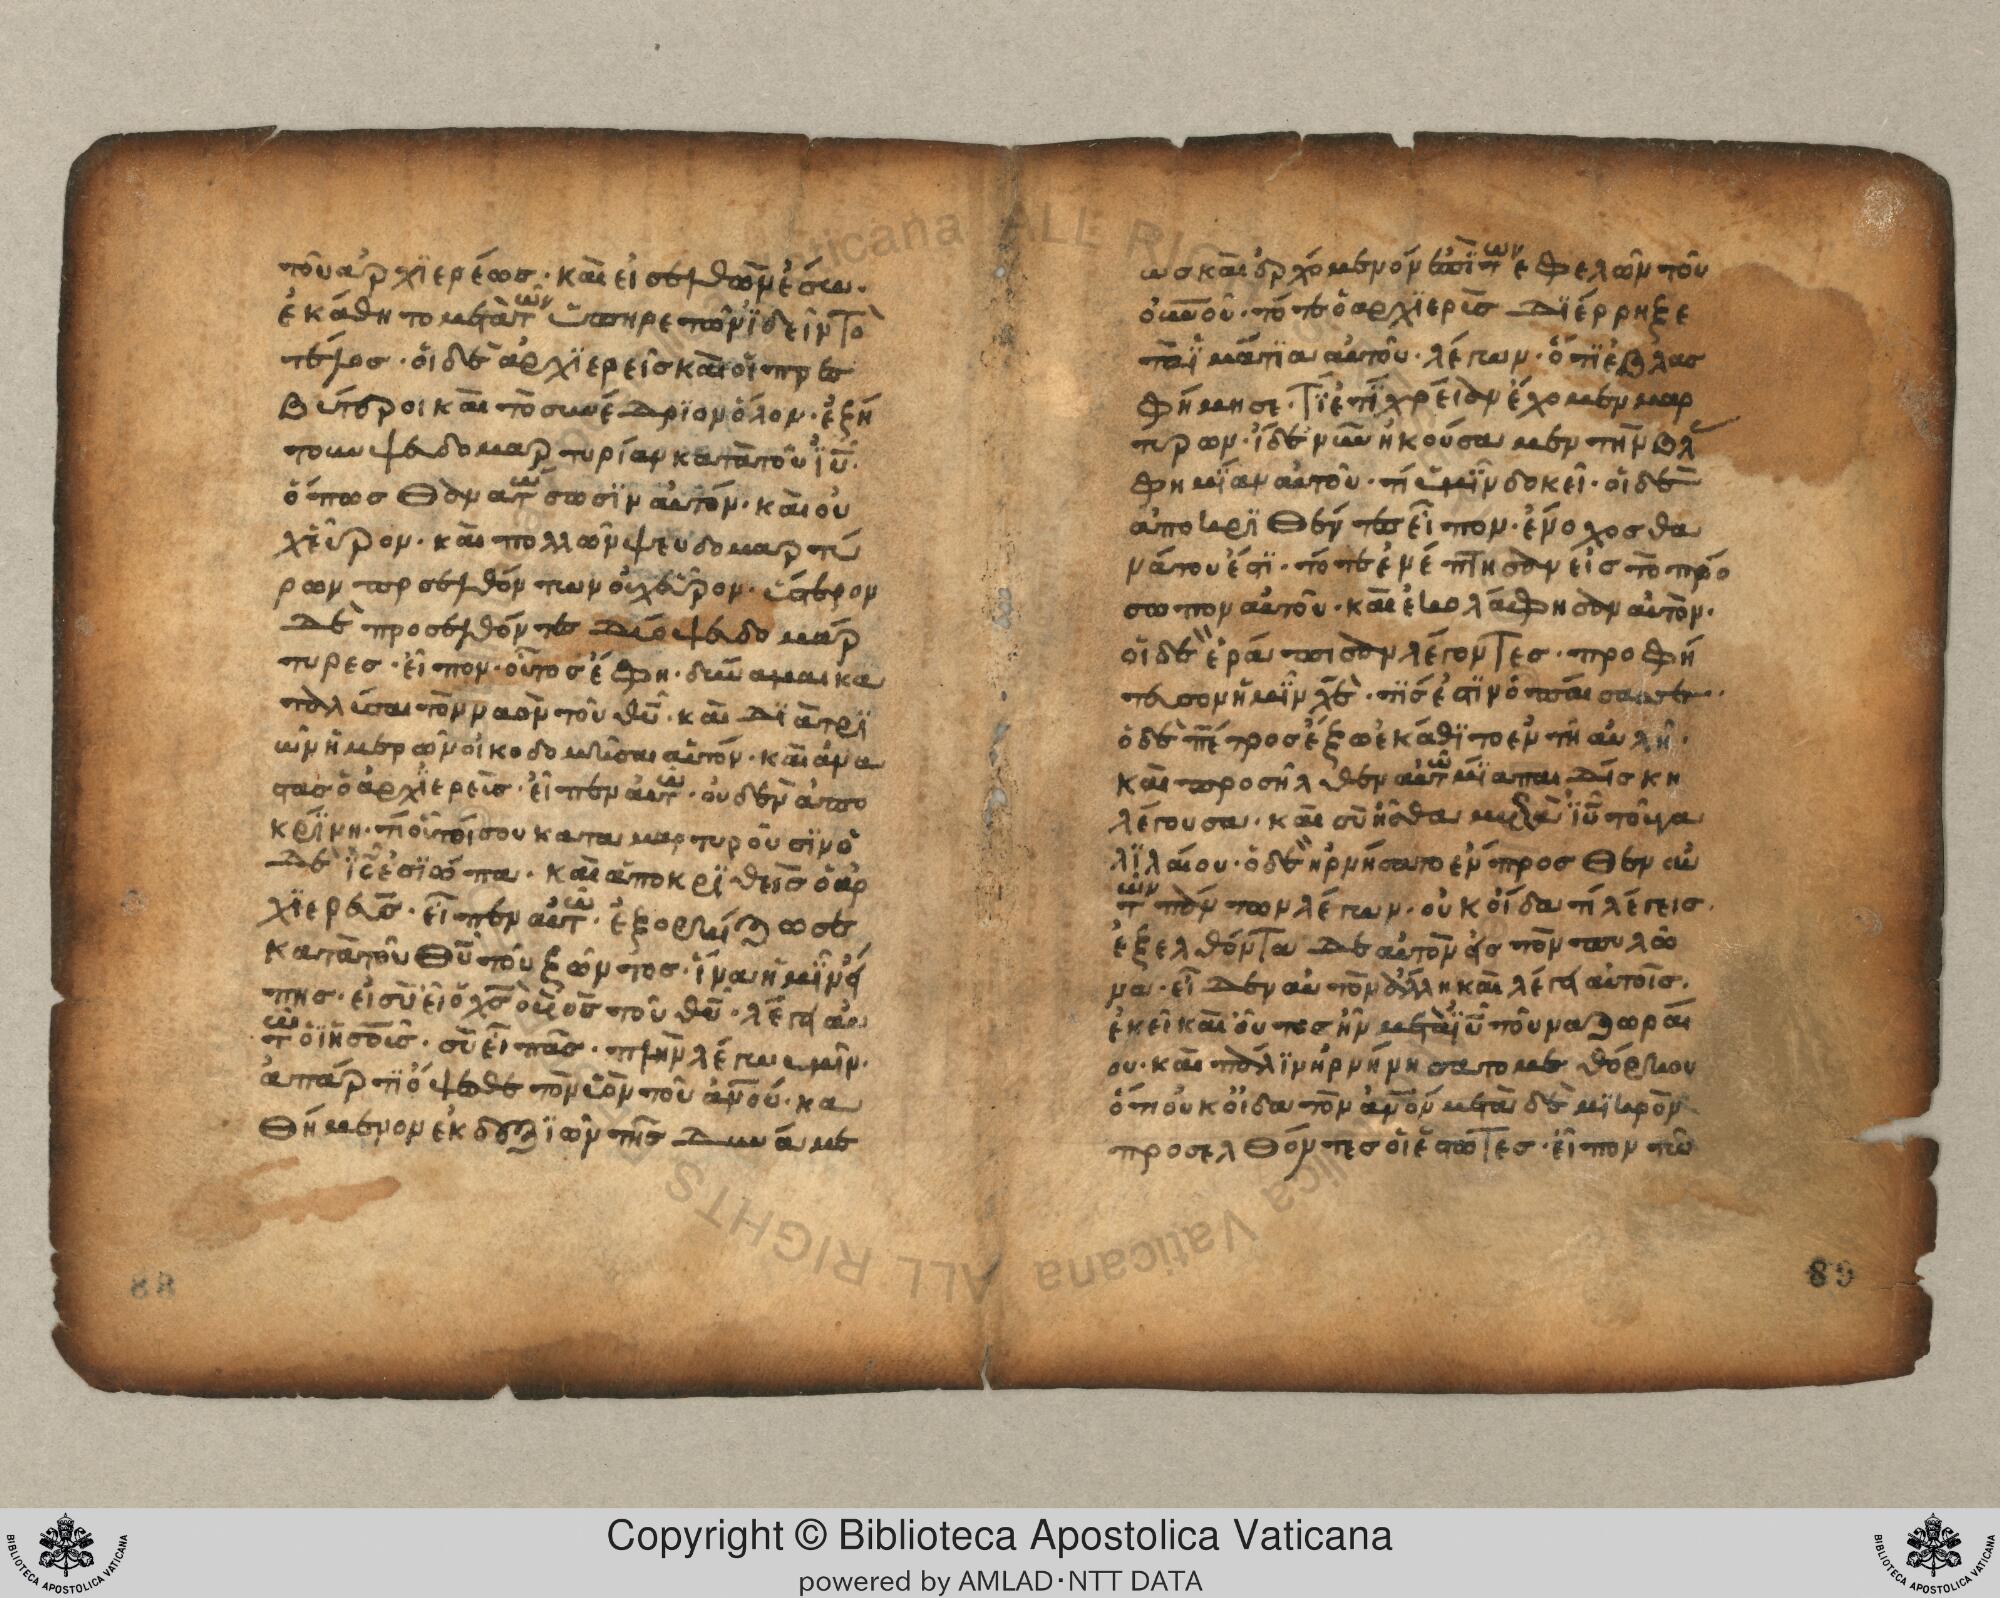 τοῦ ἀρχϊερέως· καὶ εἰσελθὼν ἔσω·
ἐκάθητο μετὰ τῶν ὑπηρετῶν ἰδεῖν τὸ
τέλος· ὁι δὲ ἀρχϊερεῖς καὶ ὁι πρεσ
βύτεροι καὶ τὸ συνέδρϊον ὅλον· ἐξή
τουν ψευδομαρτυρίαν κατὰ τοῦ ϊῦ·
ὅπως θανατώσωσϊν αὐτόν· καὶ οὐ
χ εὗρον· καὶ πολλῶν ψευδομαρτύ
ρων προσελθόντων οὐχ εὗρον· ὕστερον
δὲ προσελθόντες δύο ψευδομάρ
τυρες· εἶπον· οὗτος ἔφη· δύναμαι κα
ταλύσαι τὸν ναὸν τοῦ θῦ· καὶ δϊὰ τρϊ
ῶν ἡμερῶν οἰκοδομῆσαι αὐτόν· καὶ ἀνα
στὰς ὁ ἀρχϊερεῖς· εἶπεν αὐτῶ· οὐδὲν ἀπο
κρίνη· τί οὗτοί σου καταμαρτυροῦσϊν ὁ
δὲ ϊς ἐσϊώπα· καὶ ἀποκρϊθεὶς ὁ ἀρ
χϊερεὺς· εἶπεν αὐτῶ· ἐξορκίζω σε
κατὰ τοῦ θῦ τοῦ ζῶντος· ἵνα ἡμῖν εἴ
πης· εἰ σὺ εἶ ὁ χς ὁ υἱὸς τοῦ θῦ· λέγει αὐ
τῶ ὁ ϊησοῦς· σὺ εἶπας· πλὴν λέγω ὑμῖν·
ἀπάρτϊ ὄψεσθε τὸν υἱὸν τοῦ ἀνου· κα
θήμενον ἐκ δεξϊῶν τῆς δυνάμε
ως καὶ ἐρχόμενον ἐπὶ τῶν νεφελῶν τοῦ
οὐνοῦ· τότε ὁ ἀρχϊερεὶς δϊέρρηξε
τὰ ἱμάτϊα αὐτοῦ· λέγων· ὅτϊ ἐβλασ
φήμησε· τί ἔτϊ χρείαν ἔχομεν μαρ
τύρων· ἴδε νῦν ἠκούσαμεν τὴν βλασ
φημίαν αὐτοῦ· τί ὑμῖν δοκεῖ· οἱ δὲ
ἀποκρϊθέντες εἶπον· ἔνοχος θα
νάτου ἐστί· τότε ἐνέπτησαν εἰς τὸ πρό
σωπον αὐτοῦ· καὶ ἐκολάφησαν αὐτὸν·
οἱ δὲ ἐράπϊσαν λέγοντες· προφή
τευσον ἡμῖν χὲ· τίς ἐστϊν ὁ παίσας σε·
ὁ δὲ πέτρος ἔξω ἐκάθϊτο ἐν τῆ αὐλῆ·
καὶ προσῆλθεν αὐτῶ μία παιδίσκη
λέγουσα· καὶ σὺ ἦσθα μετὰ ϊῦ τοῦ γα
λϊλαίου· ὁ δὲ ἠρνήσατο ἔμπροσθεν αὐ
τῶν πάντων λέγων· οὐκ οἶδα τί λέγεις·
ἐξελθόντα δὲ αὐτὸν εἰς τὸν πυλῶ
να· εἶδεν αὐτὸν ἄλλη καὶ λέγει αὐτοῖς·
ἐκεῖ καὶ οὗτος ἦν μετὰ ϊῦ τοῦ ναζωραί
ου· καὶ πάλϊν ἠρνήσατο μεθ όρκου
ὅτι οὐκ οἶδα τὸν ἄνον μετὰ δὲ μϊκρὸν
προσελθόντες οἱ ἑστῶτες· εἶπον τῶ
88
89
Copyright © Biblioteca Apostolica Vaticana
powered by AMLAD·NTT DATA
BIBLIOTECA APOSTOLICA VATICANA
BIBLIOTECA APOSTOLICA VATICANA